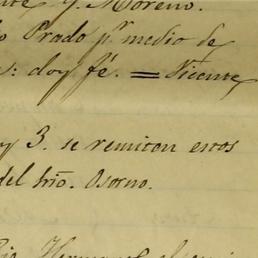 y Moreno.
Prado pr. medio de
doy fé. = Vicente
y 3. se remiten estos
del trio. Osorno.